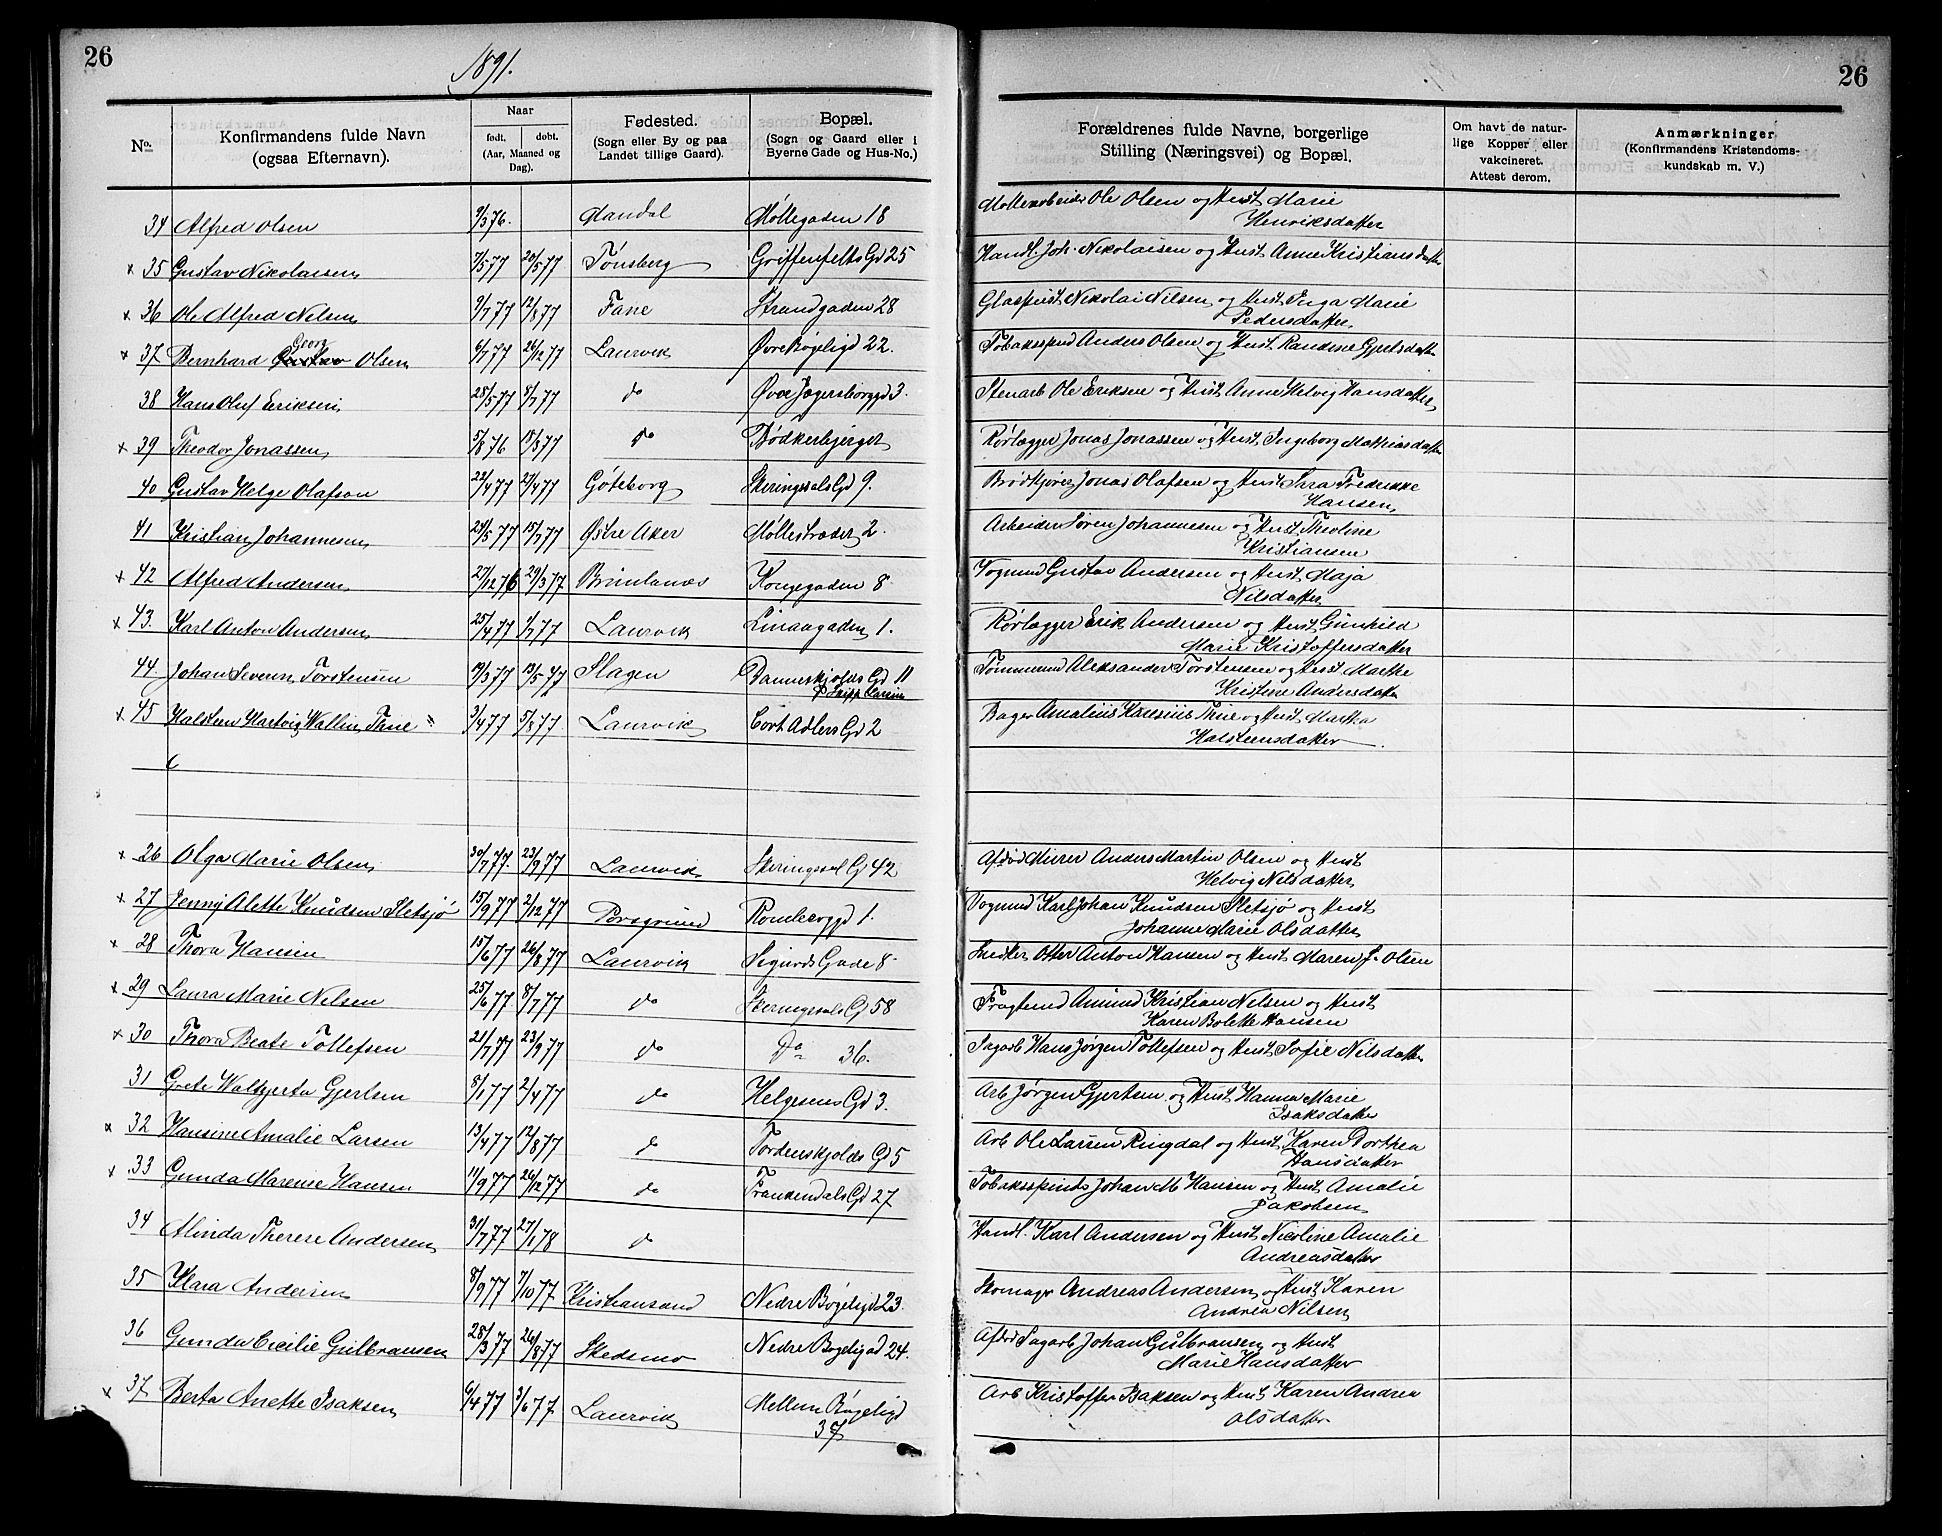 26
1891.
26
No.
Konfirmandens fulde Navn
(ogsaa Efternavn).
Naar
født.
døbt.
(Aar, Maaned og
Dag).
Fødested.
(Sogn eller By og paa
Landet tillige Gaard).
Bopæl.
(Sogn og Gaard eller i
Byerne Gade og Hus-No.)
Forældrenes fulde Navne, borgerlige
Stilling (Næringsvei) og Bopæl.
Om havt de natur-
lige Kopper eller
vakcineret.
Attest derom.
Anmærkninger
(Konfirmandens Kristendoms-
kundskab m. V.)
34 Alfred Olsen 9/3 76. Mandal Møllegaden 18 Møllearbeider Ole Olsen og Hust Marie
Henriksdatter
x 35 Gustav Nikolaisen 7/5 77 20/5 77 Tönsberg Griffenfelts Gd 25 Handl. Joh. Nikolaisen og Hust Anne Kristiansdatter
x 36 Ole Alfred Nilsen 9/7 77 12/8 77 Fane Strandgaden 28 Glaspust Nikolai Nilsen og Hust Inga Marie
Pedersdatter
Georg
x 37 Bernhard Gustav Olsen 6/7 77 26/12 77 Laurvik Øvre Bøgeligd 22. Tobaksspind Anders Olsen og Hust Randine Gjertsdatter
38 Hans Oluf Eriksen 28/5 77 8/7 77 do Øvre Jegersborggd 3. Stenarb Ole Eriksen og Hust Anne Helvig Hansdatter
x 39 Theodor Jonassen 5/8 76 18/3 77 do Bødkerbjerget Rørlægger Jonas Jonassen og Hust Ingeborg Mathiasdatter
40 Gustav Helge Olafson 22/4 77 24/4 77 Göteborg Skeringssals Gd 9. Brödkjører Jonas Olafsen og Hust Sara Fredrikke
Hansen
41 Kristian Johannesen 24/5 77 15/7 77 Østre Aker Møllestrædet 2. Arbeider Søren Johannesen og Hust Theoline
Kristiansen
x 42 Alfred Andersen 27/12 76 29/3 77 Brunlanæs Kongegaden 8 Vogmand Gustav Andersen og Hust Maja
Nilsdatter
x 43. Karl Anton Andersen 25/4 77 1/7 77 Laurvik Linaagaden 1. Rørlægger Erik Andersen og Hust Gunhild
Marie Kristoffersdatter
44 Johan Severin Torstensen 19/3 77 13/5 77 Slagen Danneskjolds Gd 11 Tømmermd Aleksander Torstensen og Hust Marthe
Kristine Andersdatter
x 45 Halsten Hartvig Wallin Thue 3/4 77 5/8 77. Laurvik Cort Adlers Gd 2 Bager Amalius Hansius Thue og Hust Martha
Halstensdatter
x 26 Olga Marie Olsen 30/7 77. 23/9 77 Laurvik Skeringssal Gd 42 Afdöd Murer Anders Martin Olsen og Hust
Helvig Nilsdatter
x 27 Jenny Alette Knudsen Sletsjø 15/9 77 2/12 77 Porsgrund Romberggd 1. Vogmnd Karl Johan Knudsen Sletsjø og Hust
Johanne Marie Olsdatter
x 28 Thora Hansen 15/6 77 26/8 77 Laurvik Sigurds Gade 8 Snedker Otter Anton Hansen og Hust Maren J. Olsen
x 29 Laura Marie Nilsen 25/6 77 8/7 77 do Skeringssals Gd 58 Fragtemd Amund Kristian Nilsen og Hust
Karen Bolette Hansen
x 30 Thora Beate Tollefsen 21/7 77 23/9 77 do Do 36. Sagarb Hans Jørgen Tollefsen og Hust Sofie Nilsdatter
31 Grete Walbjerta Gjertsen 8/1 77 2/4 77 do Helgesens Gd 3. Arb Jørgen Gjertsen og Hust Hanna Marie
Isaksdatter
x 32 Hansine Amalie Larsen 13/4 77 12/8 77 do Tordenskjolds Gd 5 Arb Ole Larsen Ringdal og Hust Karen Dorthea
Hansdatter
x 33 Gunda Marense Hansen 11/9 77 26/12 77 do Frankendals Gd 27 Tobaksspinds Johan M Hansen og Hust Amalie
Jakobsen
34 Alinda Therese Andersen 31/7 77 27/1 78 do Handl. Karl Andersen og Hust Nicoline Amalie
Andreasdatter
35 Klara Andersen 8/9 77 7/10 77. Kristiansand Nedre Bøgeligd 23. Skomagr Andreas Andersen og Hust Karen
Andrea Nilsen
36 Gunda Cecilie Gulbransen 28/3 77 26/8 77 Skedsmo Nedre Bøgeligad 24. Afdød Sagarb Johan Gulbransen og Hust
Marie Hansdatter
x 37 Berta Anette Isaksen 6/4 77 3/6 77. Laurvik Mellem Bøgeligd
37 Arb Kristoffer Isaksen og Hust Karen Andrea
Olsdatter